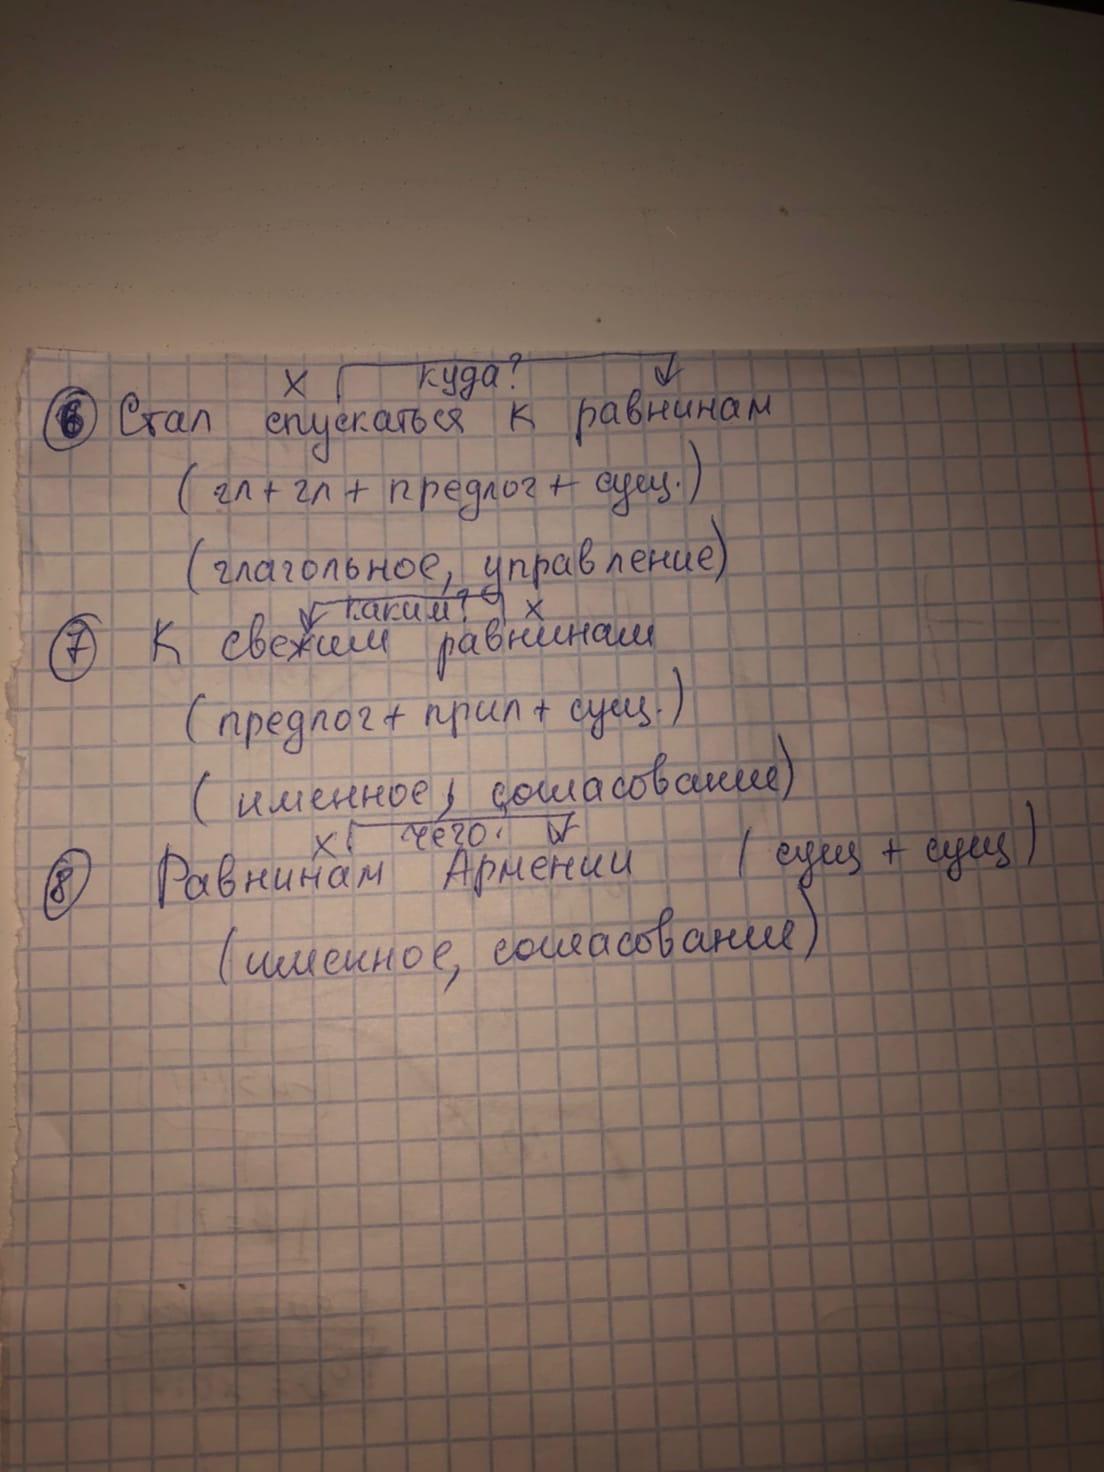 куда?
⑥ Стал спускаться к равнинам
(гл + гл + предлог + сущ.)
(глагольное, управление)
каким?
⑦ К свежим равнинам
(предлог + прил + сущ.)
(именное, согласование)
чего?
⑧ Равнинам Армении (сущ + сущ)
(именное, согласование)